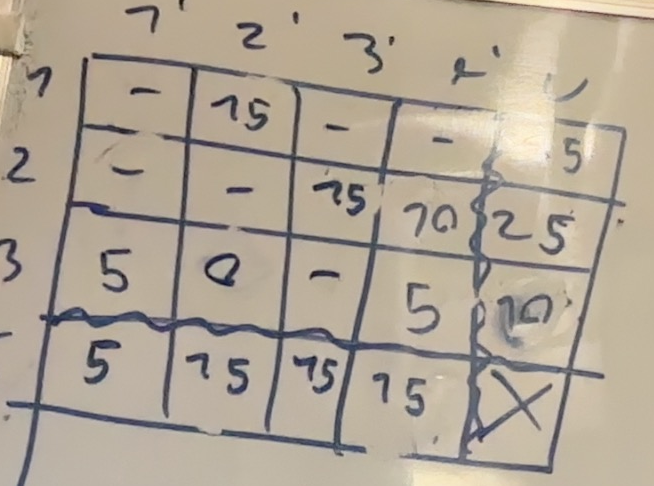 1' 2' 3' 4'
1 - 15 - - 5
2 - - 15 10 25
3 5 0 - 5 10
5 15 15 15 X